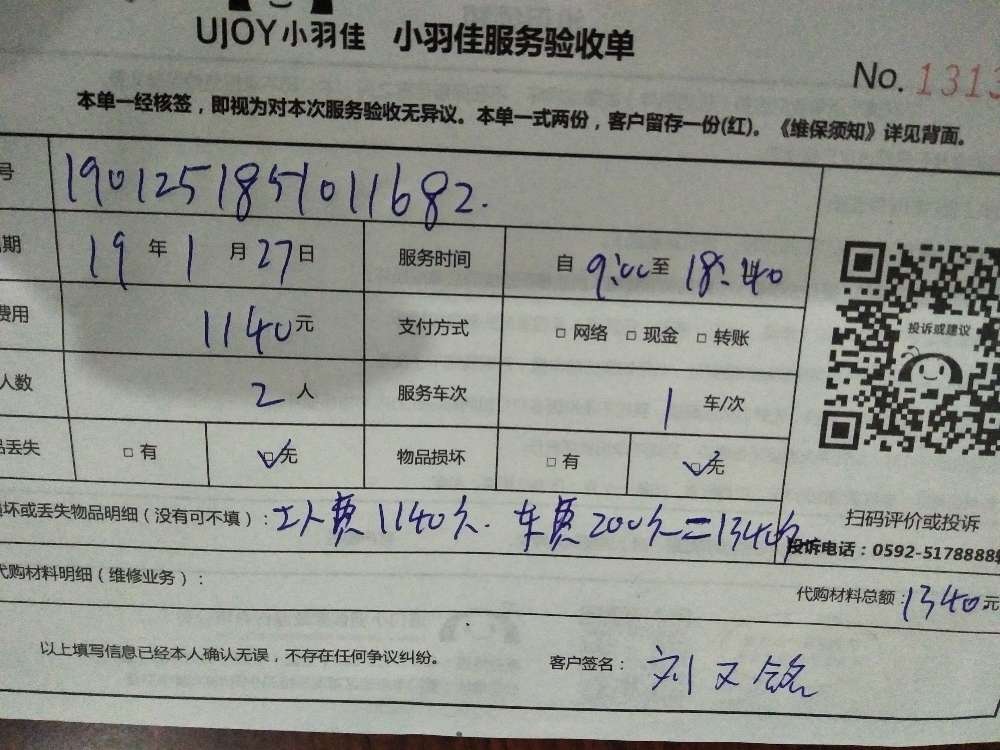 UJOY小羽佳 小羽佳服务验收单
No. 1313
本单一经核签，即视为对本次服务验收无异议。本单一式两份，客户留存一份(红)。《维保须知》详见背面。
号 1901251851011682.
期 19 年 1 月 27 日 服务时间 自 9:00 至 18:40
费用 1140 元 支付方式 □ 网络 □ 现金 □ 转账
人数 2 人 服务车次 1 车/次
品丢失 □ 有 ☑ 无 物品损坏 □ 有 ☑ 无
投诉或建议
扫码评价或投诉
投诉电话：0592-5178888转
损坏或丢失物品明细（没有可不填）：工人费1140元. 车费200元=1340元
代购材料明细（维修业务）：
代购材料总额：1340元
以上填写信息已经本人确认无误，不存在任何争议纠纷。 客户签名：刘又铭